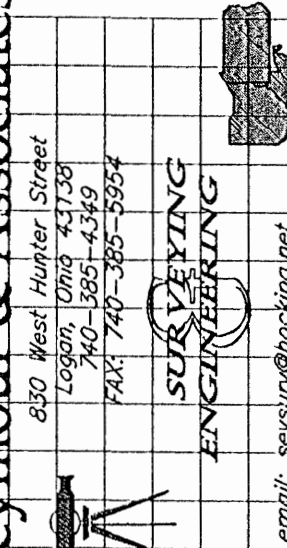 & Associates
830 West Hunter Street
Logan, Ohio 43138
740-385-4349
FAX: 740-385-5954
SURVEYING
&
ENGINEERING
email: seysurv@hocking.net